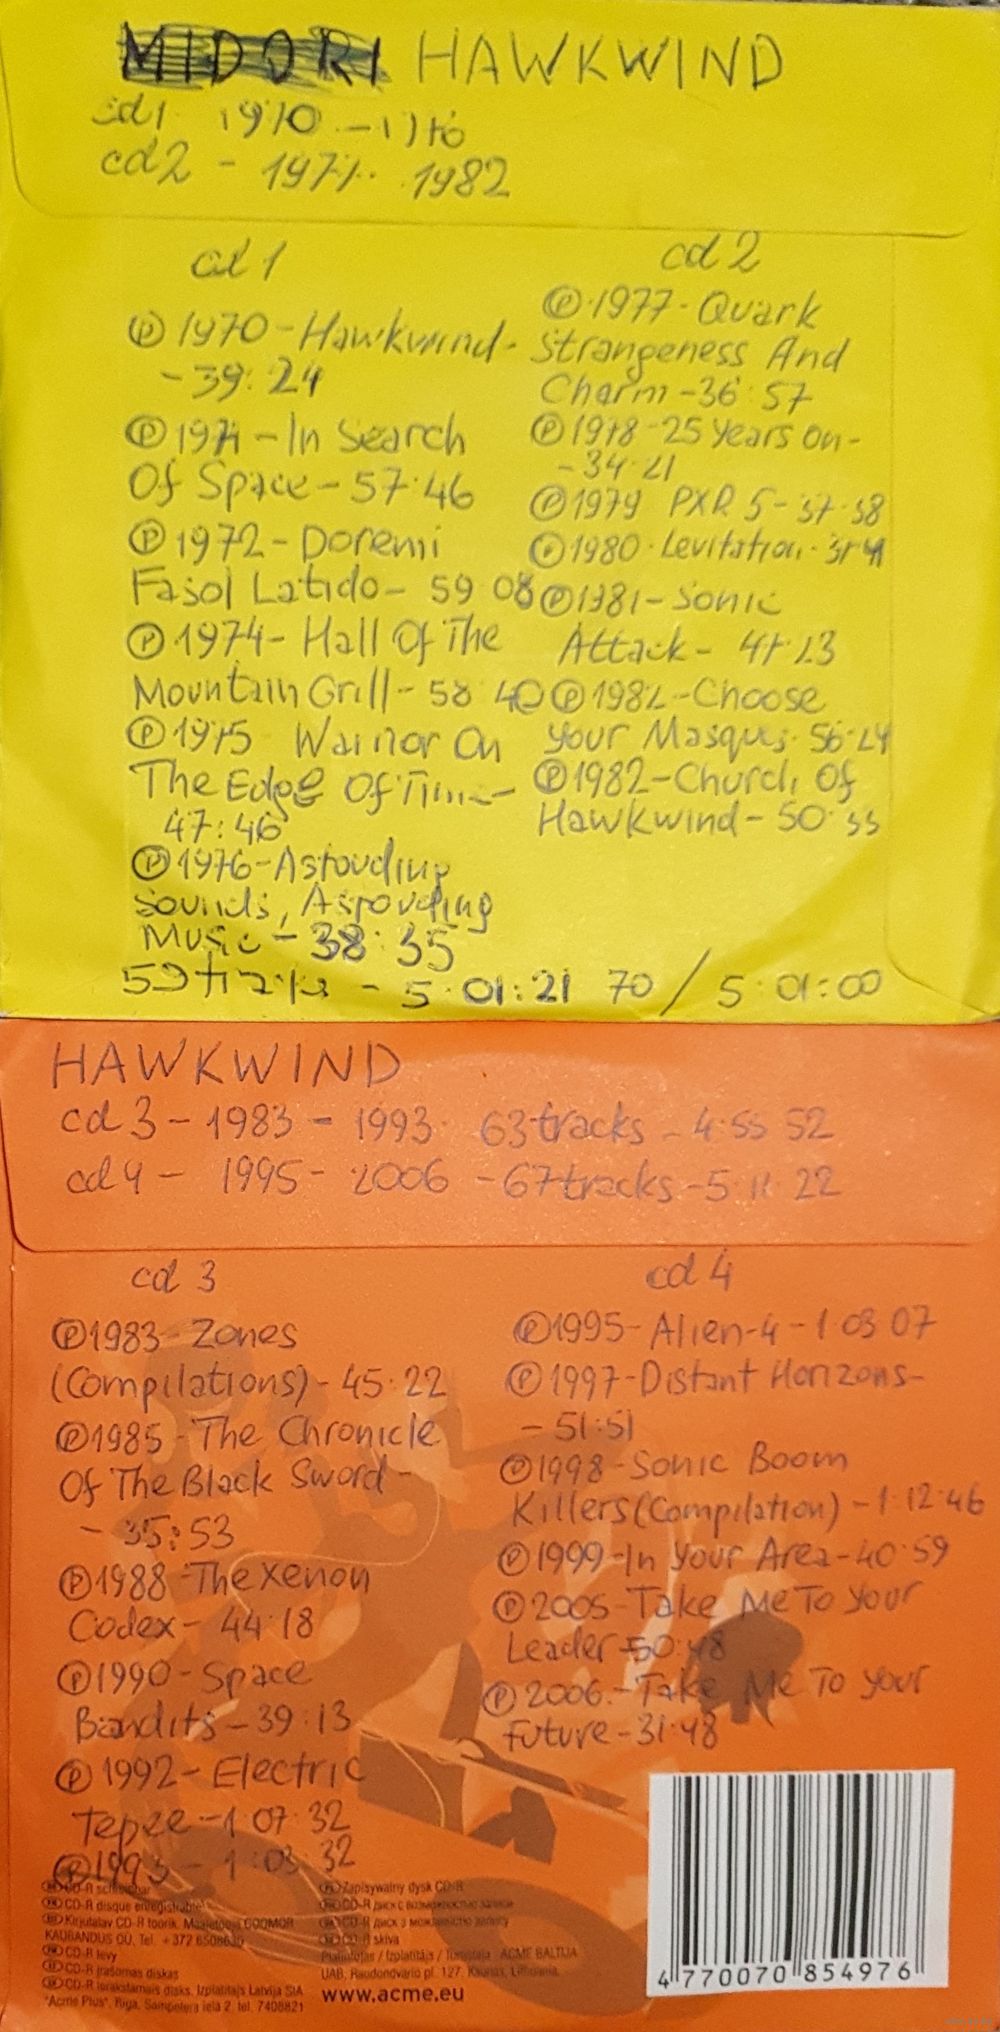 MIDORI HAWKWIND
cd1 1970 - 1976
cd2 - 1977 - 1982
cd 1
Ⓟ 1970 - Hawkwind -
- 39:24
Ⓟ 1971 - In Search
Of Space - 57:46
Ⓟ 1972 - Doremi
Fasol Latido - 59:08
Ⓟ 1974 - Hall Of The
Mountain Grill - 58:40
Ⓟ 1975 Warrior On
The Edge Of Time -
47:46
Ⓟ 1976 - Astouding
Sounds, Aspouding
Music - 38:35
cd 2
Ⓟ 1977 - Quark
Strangeness And
Charm - 36:57
Ⓟ 1978 - 25 Years On -
- 34:21
Ⓟ 1979 PXR 5 - 37:38
Ⓟ 1980 - Levitation -
Ⓟ 1981 - Sonic
Attack - 41:23
Ⓟ 1982 - Choose
Your Masques - 56:24
Ⓟ 1982 - Church Of
Hawkwind - 50:55
59 tracks - 5:01:21 70 / 5:01:00
HAWKWIND
cd 3 - 1983 - 1993 63 tracks - 4:55:52
cd 4 - 1995 - 2006 - 67 tracks - 5:11:22
cd 3
Ⓟ 1983 - Zones
(Compilations) - 45:22
Ⓟ 1985 - The Chronicle
Of The Black Sword -
- 35:53
Ⓟ 1988 - The Xenon
Codex - 44:18
Ⓟ 1990 - Space
Bandits - 39:13
Ⓟ 1992 - Electric
Tepee - 1:07:32
Ⓟ 1993 - 1:03:32
cd 4
Ⓟ 1995 - Alien-4 - 1:03:07
Ⓟ 1997 - Distant Horizons -
- 51:51
Ⓟ 1998 - Sonic Boom
Killers (Compilation) - 1:12:46
Ⓟ 1999 - In Your Area - 40:59
Ⓟ 2005 - Take Me To Your
Leader - 50:48
Ⓟ 2006 - Take Me To Your
Future - 31:48
CD-R
CD-R disque enregistrable
Kirjutatav CD-R toorik. Maaletooja COOMOR
KAUBANDUS OÜ, Tel. +372 6508
CD-R levy
CD-R įrašomas diskas
CD-R ierakstāmais disks. Izplatītājs Latvijā SIA
"Acme Plus", Rīga, Sampētera iela 2, tel. 7408821
Zapisywalny dysk CD-R
CD-R диск с возможностью записи
CD-R диск з можливістю запису
CD-R skiva
Platintojas / Izplatītājs / ACME BALTIJA
UAB, Raudondvario pl. 127, Kaunas, Lithuania.
www.acme.eu
4 770070 854976